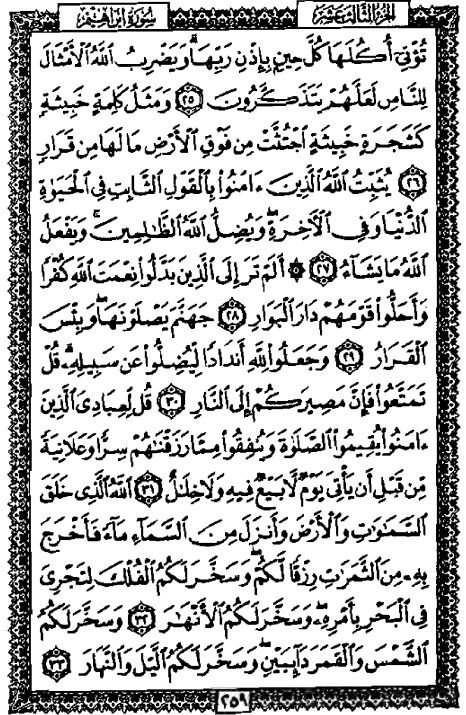 الجزء الثالث عشر
سورة إبراهيم
تُؤْتِىٓ أُكُلَهَا كُلَّ حِينٍۭ بِإِذْنِ رَبِّهَا ۗ وَيَضْرِبُ ٱللَّهُ ٱلْأَمْثَالَ
لِلنَّاسِ لَعَلَّهُمْ يَتَذَكَّرُونَ ٢٥ وَمَثَلُ كَلِمَةٍ خَبِيثَةٍ
كَشَجَرَةٍ خَبِيثَةٍ ٱجْتُثَّتْ مِن فَوْقِ ٱلْأَرْضِ مَا لَهَا مِن قَرَارٍ
٢٦ يُثَبِّتُ ٱللَّهُ ٱلَّذِينَ ءَامَنُوا۟ بِٱلْقَوْلِ ٱلثَّابِتِ فِى ٱلْحَيَوٰةِ
ٱلدُّنْيَا وَفِى ٱلْءَاخِرَةِ ۖ وَيُضِلُّ ٱللَّهُ ٱلظَّـٰلِمِينَ ۚ وَيَفْعَلُ
ٱللَّهُ مَا يَشَآءُ ٢٧ ۞ أَلَمْ تَرَ إِلَى ٱلَّذِينَ بَدَّلُوا۟ نِعْمَتَ ٱللَّهِ كُفْرًا
وَأَحَلُّوا۟ قَوْمَهُمْ دَارَ ٱلْبَوَارِ ٢٨ جَهَنَّمَ يَصْلَوْنَهَا ۖ وَبِئْسَ
ٱلْقَرَارُ ٢٩ وَجَعَلُوا۟ لِلَّهِ أَندَادًا لِّيُضِلُّوا۟ عَن سَبِيلِهِۦ ۗ قُلْ
تَمَتَّعُوا۟ فَإِنَّ مَصِيرَكُمْ إِلَى ٱلنَّارِ ٣٠ قُل لِّعِبَادِىَ ٱلَّذِينَ
ءَامَنُوا۟ يُقِيمُوا۟ ٱلصَّلَوٰةَ وَيُنفِقُوا۟ مِمَّا رَزَقْنَـٰهُمْ سِرًّا وَعَلَانِيَةً
مِّن قَبْلِ أَن يَأْتِىَ يَوْمٌ لَّا بَيْعٌ فِيهِ وَلَا خِلَـٰلٌ ٣١ ٱللَّهُ ٱلَّذِى خَلَقَ
ٱلسَّمَـٰوَٰتِ وَٱلْأَرْضَ وَأَنزَلَ مِنَ ٱلسَّمَآءِ مَآءً فَأَخْرَجَ
بِهِۦ مِنَ ٱلثَّمَرَٰتِ رِزْقًا لَّكُمْ ۖ وَسَخَّرَ لَكُمُ ٱلْفُلْكَ لِتَجْرِىَ
فِى ٱلْبَحْرِ بِأَمْرِهِۦ ۖ وَسَخَّرَ لَكُمُ ٱلْأَنْهَـٰرَ ٣٢ وَسَخَّرَ لَكُمُ
ٱلشَّمْسَ وَٱلْقَمَرَ دَآئِبَيْنِ ۖ وَسَخَّرَ لَكُمُ ٱلَّيْلَ وَٱلنَّهَارَ ٣٣
٢٥٩